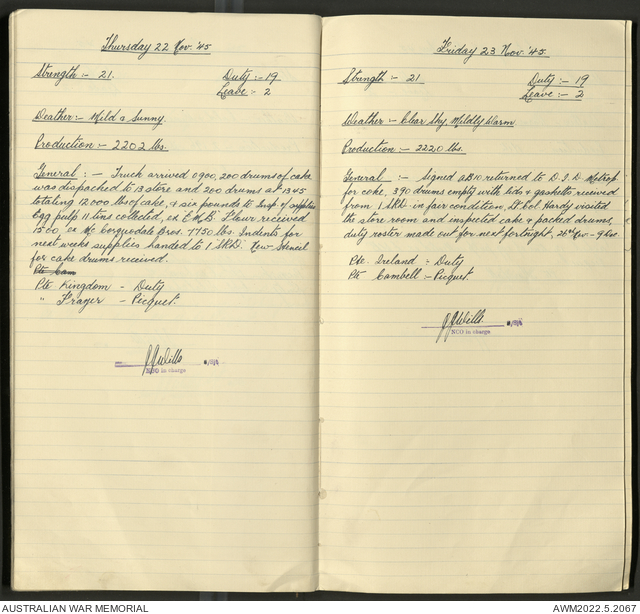 Thursday 22 Nov. '45
Strength :- 21. Duty :- 19
Leave :- 2
Weather :- Mild & Sunny.
Production :- 2202 lbs.
General :- Truck arrived 0900, 200 drums of cake
was dispached to 13 store and 200 drums at 1345
totaling 12000 lbs of cake, & six pounds to Insp. of supplies
Egg pulp 11 tins collected, ex E.M.B. Flour received
1500, ex Mc Corquodale Bros. 7750 lbs. Indents for
next weeks supplies handed to 1 SRD. New Stencil
for cake drums received.
Pte Cam
Pte Kingdom - Duty
" Frazer - Picquet.
NCO in charge
Friday 23 Nov. '45
Strength :- 21 Duty :- 19
Leave :- 2
Weather :- Clear Sky, Mildly Warm
Production :- 2220 lbs.
General :- Signed AB10 returned to D.I.D. Metrop
for coke, 390 drums empty with lids & gaskets received
from 1 SRD in fair condition, Lt Col. Hardy visited
the store room and inspected cake & packed drums,
duty roster made out for next fortnight, 26th Nov - 9 Dec.
Pte. Ireland :- Duty
Pte Cambell :- Picquet.
NCO in charge
AUSTRALIAN WAR MEMORIAL
AWM2022.5.2067